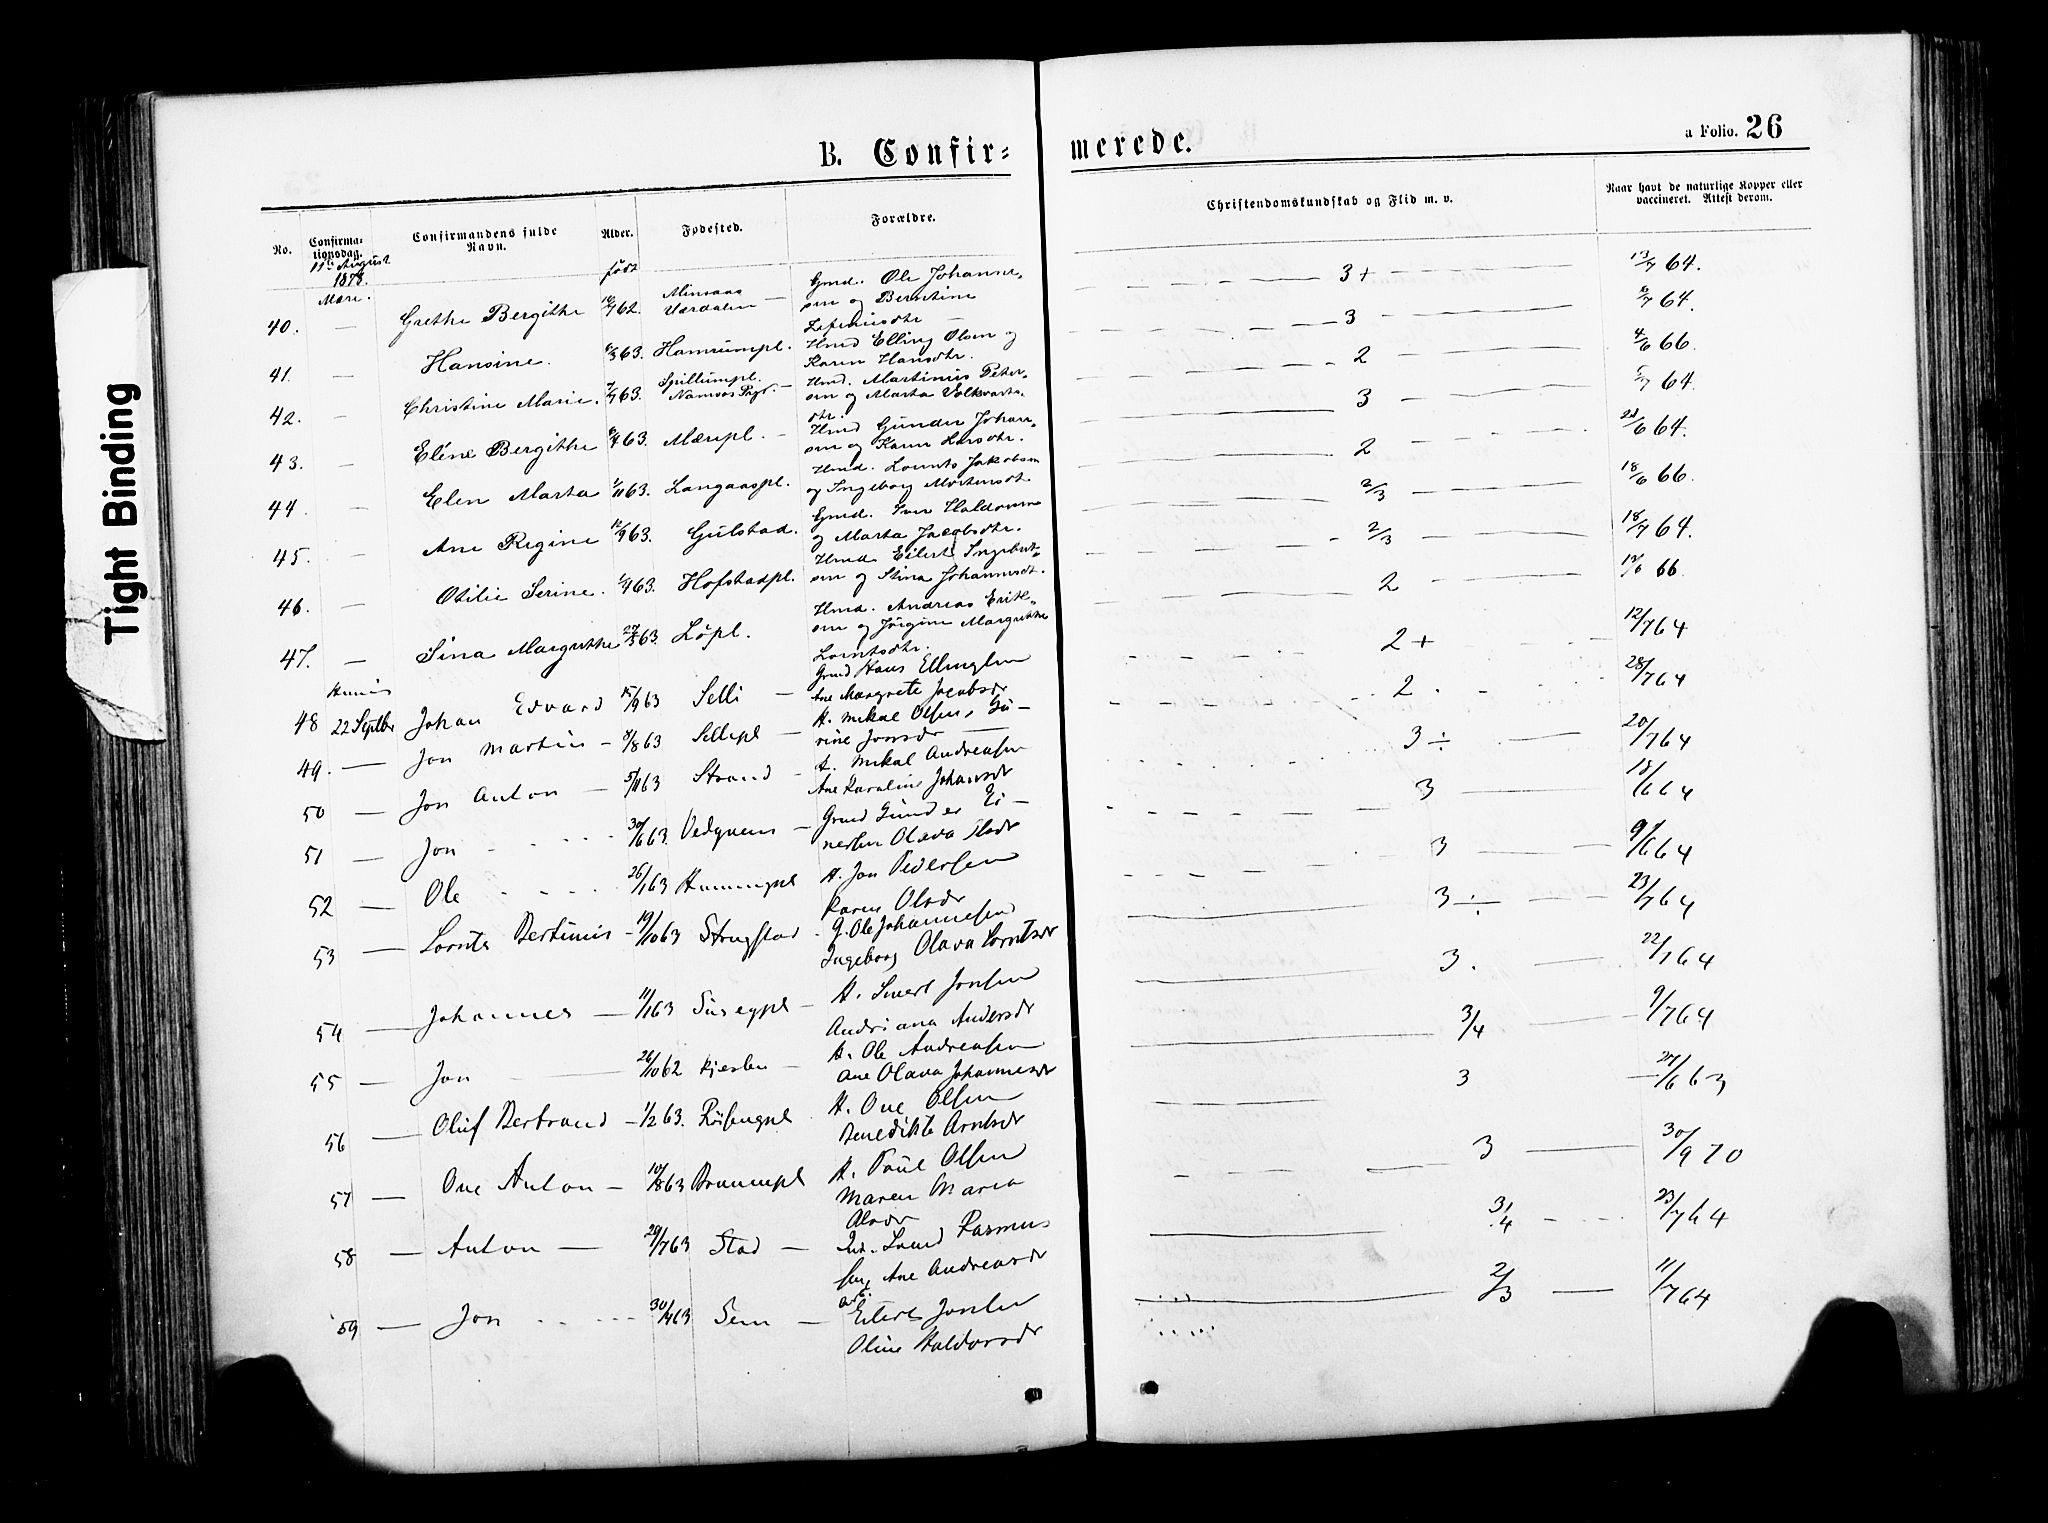 Tight Binding
B. Confir=
merede.
a Folio. 26
No.
Confirma-
tionsdag.
Confirmandens fulde
Navn.
Alder.
Fødested.
Forældre.
Christendomskundskab og Flid m. v.
Naar havt de naturlige Kopper eller
vaccineret. Attest derom.
11te August
1878.
Mære.
født
40. — Grethe Bergithe 62. Minsaas Værdalen — Gmd. Ole Johanne- 3+ 64.
sen og Berntine
41. — Hansine. 6/3 63. Hamrumpl. Hmd Elling Olsen og 3 6/7 64.
Karen Hansdtr.
42. — Christine Marie. 63. Spillumpl. Namsos Prgd. — Hmd. Martinus Peter- 2 4/6 66.
sen og Marta Volkvards-
dtr.
43. — Eline Bergithe 6/4 63. Mærepl. — Hmd Gunder Johan- 3 5/7 64.
sen og Karen Larsdtr.
44. — Elen Marta 63. Langaaspl. Hmd. Lornts Jakobsen 2 64.
og Ingeborg Mortensdt.
45. — Ane Regine 12/9 63. Gulstad. Gmd. Iver Haldorsen 2/3 18/6 66.
og Marta Jacobsdtr.
46. — Otilie Serine. 1/4 63. Hofstadpl. Hmd Eilert Ingebrt- 2/3 18/7 64.
sen og Stina Johannesdt.
47. — Sina Margrethe 27/5 63. Løpl. Hmd. Andreas Erik- 2 66.
sen og Jørgine Margrethe
Lorntsdtr.
48 22 Septbr Johan Edvard 15/9 63 Selli — Gmd Hans Ellingsen 2+ 12/7 64
Ane Margrete Jacobsdr
49. — Jon Martin — 63 Sellipl — H. Mikal Olsen, Gu- 2 28/7 64
rine Jonsdr
50 — Jon Anton — 5/11 63 Strand — H. Mikal Andreasen 3 ÷ 20/7 64
Ane Karoline Johansdr
51 — Jon 30/6 63. Vedguens — Gmd Gunder Ei- 3 18/6 64
nersen Olava Olsdr
52 — Ole 26/1 63 Hummegpl H. Jon Pedersen 3 9/6 64
Karen Olsdr
53 — Lornts Bertinus — 19/10 63 Strugstad — G. Ole Johannesen 3 ÷ 23/7 64
Ingeborg Olava Lorntsdr
54 — Johannes — 11/1 63 Susegpl — H. Sivert Jonsen 3. 22/7 64
Andriana Andersdr
55 — Jon 26/10 62 Kjesbu — H. Ole Andreasen 3/4 9/7 64
Ane Olava Johannesdr
56 — Oluf Bertrand — 1/2 63. Røisengpl H. Ove Olsen 3 27/6 63
Benedikte Arntsdr
57 — Ove Anton — 10/8 63 H. Paul Olsen 3 30/9 70
Maren Maria
Olsdr
58 — Anton — 29/7 63 Stod — Svend Rasmus 3/4 23/7 64
sen, Ane Andreasdr
59 — Jon 63 Sem — Eilert Jonsen 2/3 11/7 64
Oline Haldorsdr